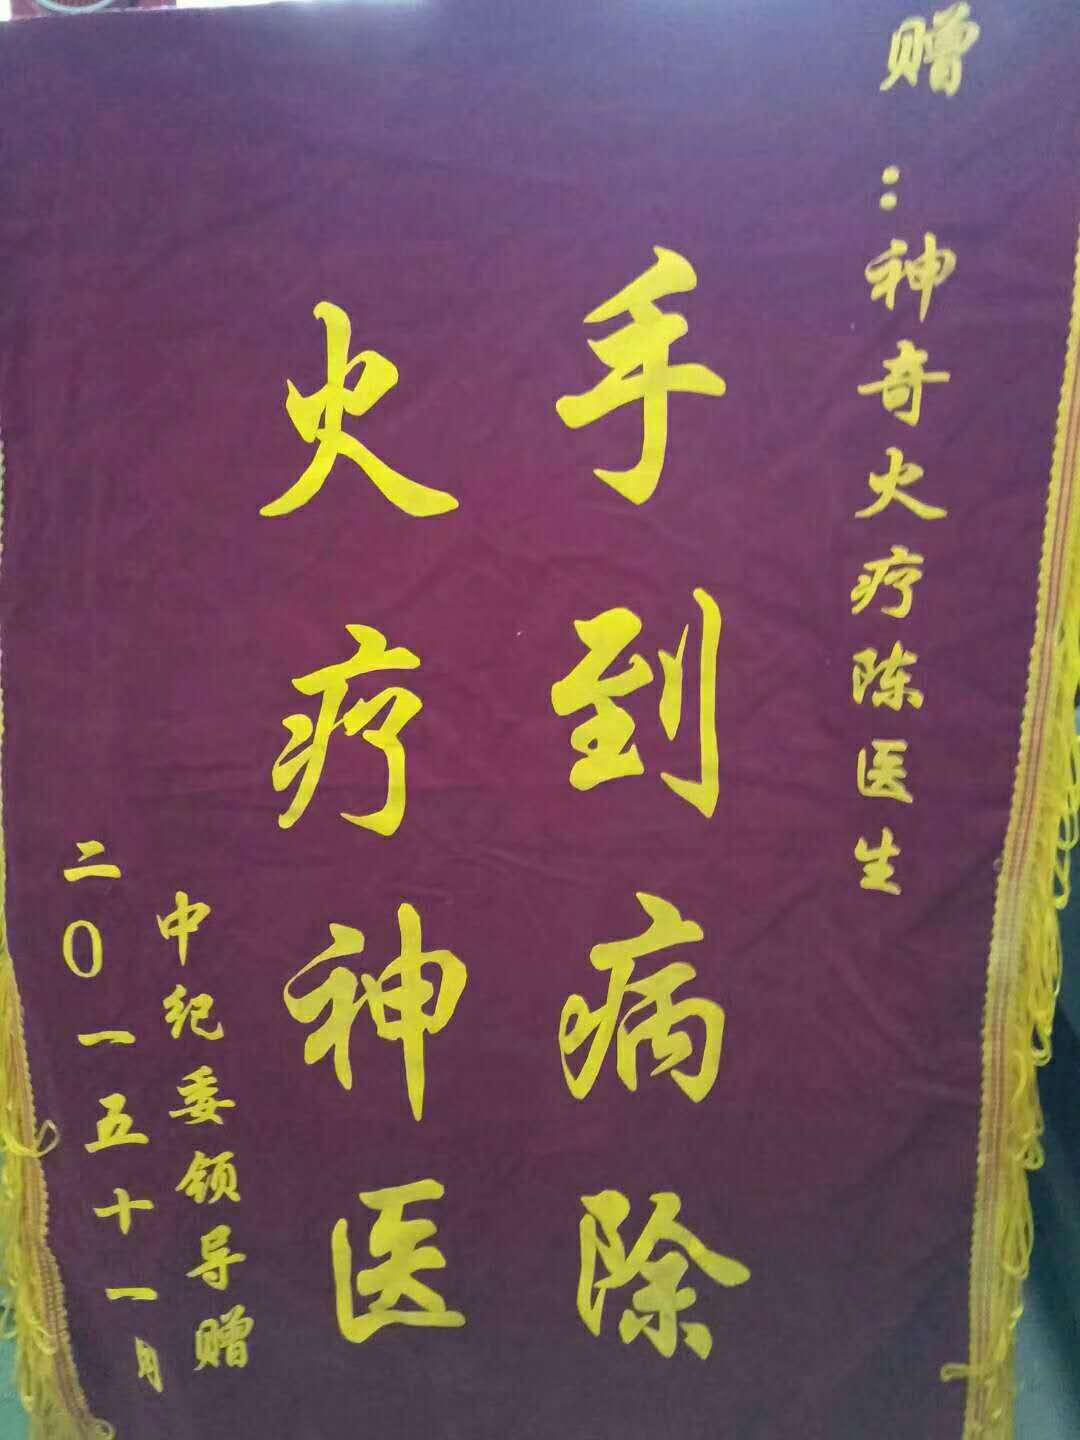 赠：神奇火疗陈医生
手到病除
火疗神医
中纪委领导赠
二0一五十一月